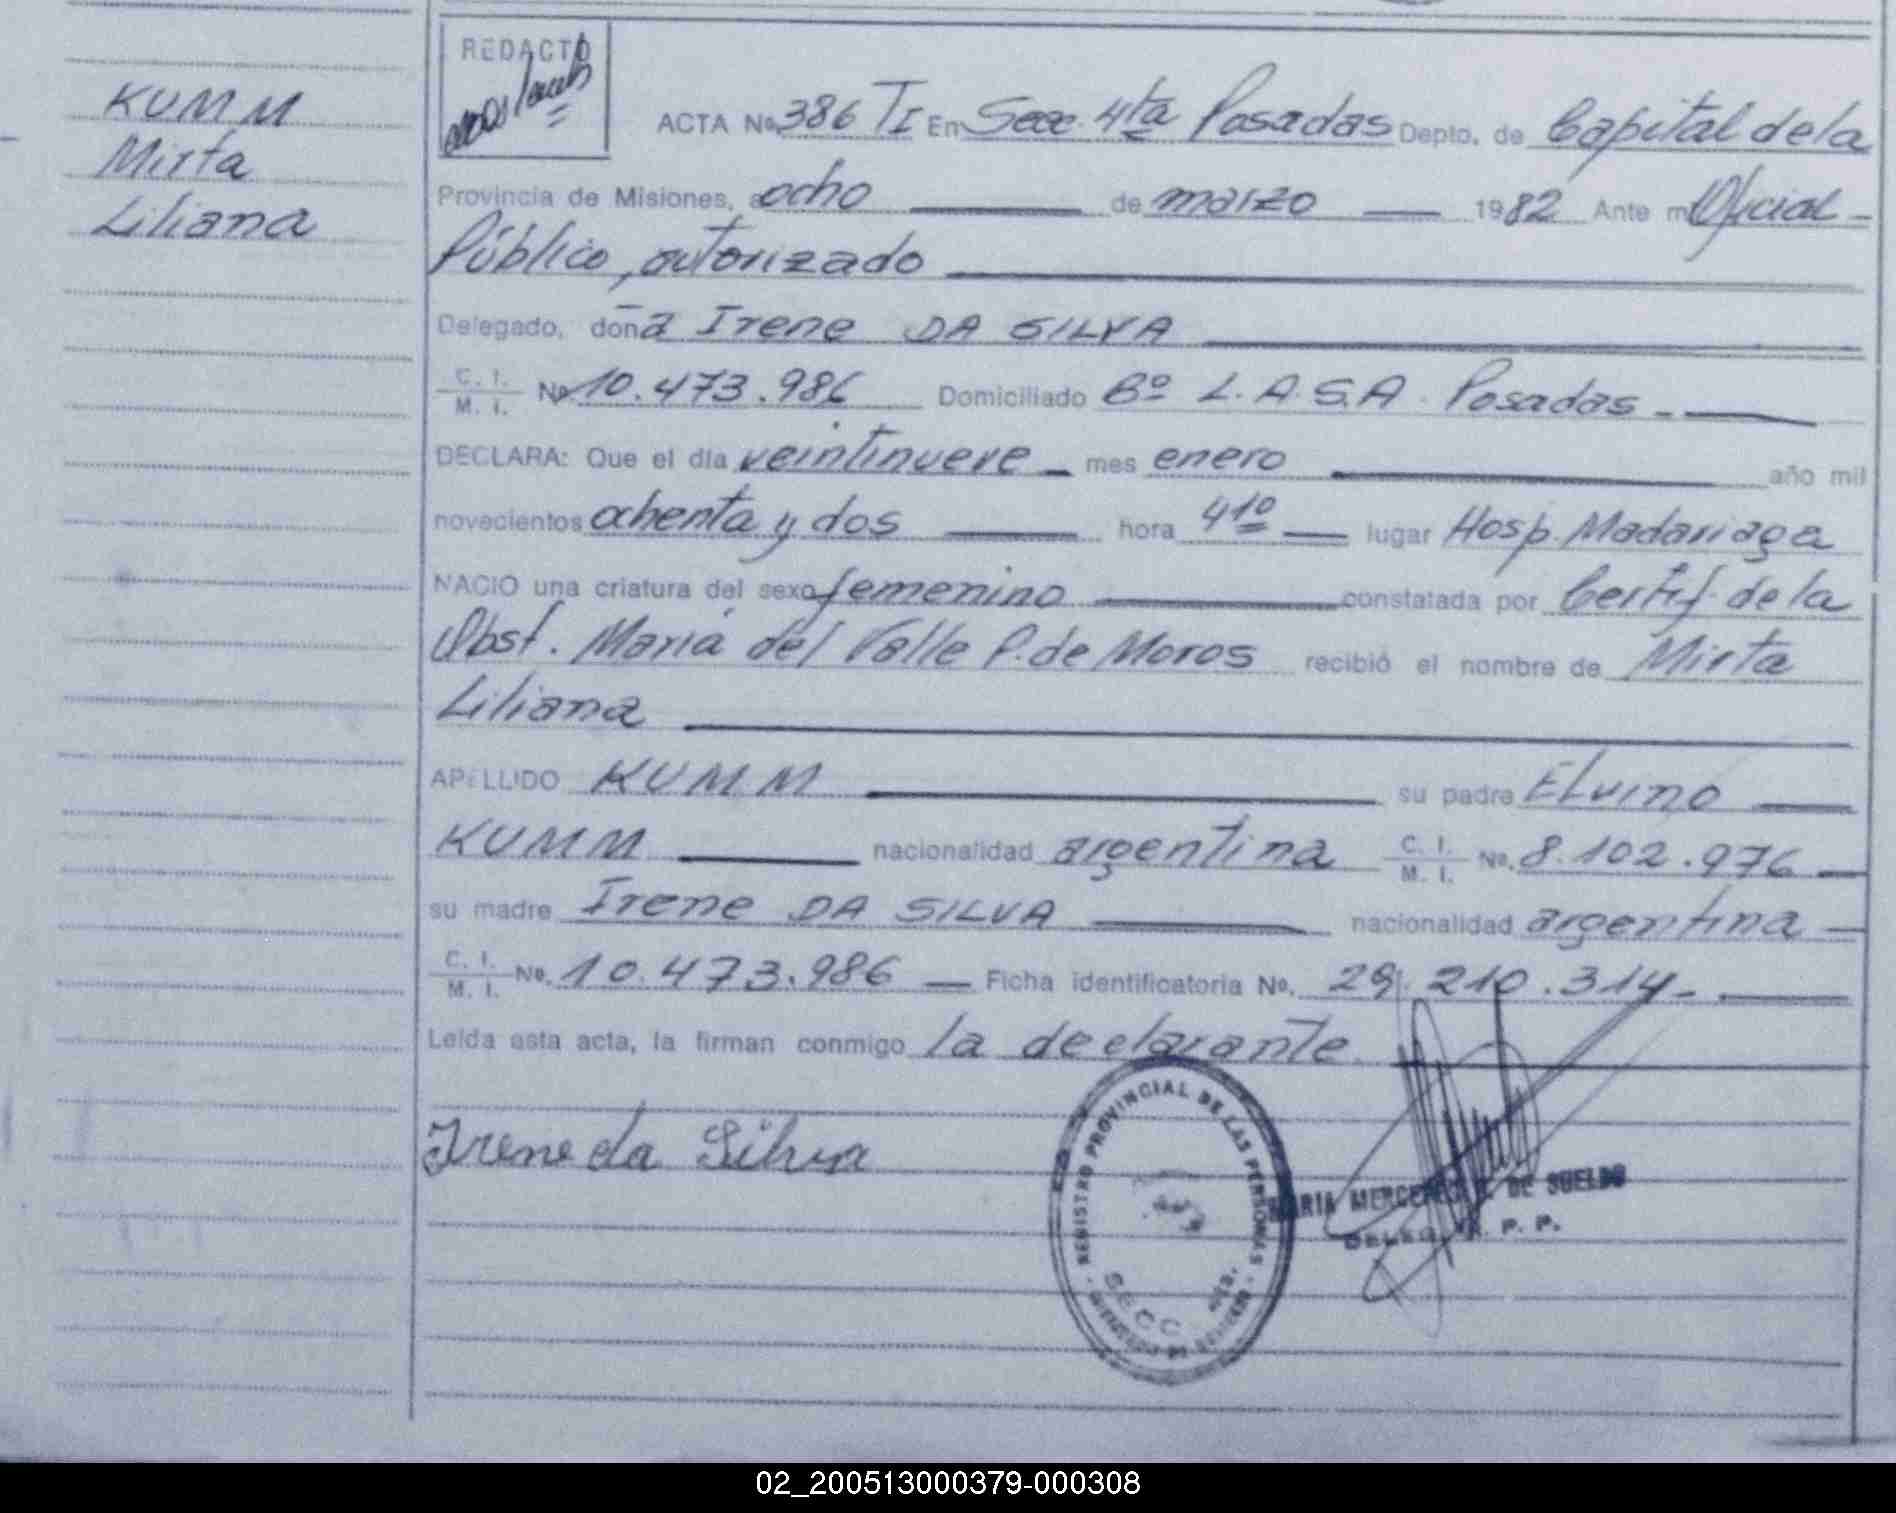 KUMM
Mirta
Liliana
REDACTO
ACTA No. 386 TI En Secc. 4ta Posadas Depto. de Capital de la
Provincia de Misiones, a ocho de marzo 1982 Ante mi Oficial
Público, autorizado
Delegado, doña Irene DA SILVA
C. I. M. I. No. 10.473.986 Domiciliado Bº L.A.S.A. Posadas
DECLARA: Que el día veintinueve mes enero año mil
novecientos ochenta y dos hora 4 10 lugar Hosp. Madariaga
NACIO una criatura del sexo femenino constatada por Certif. de la
Obst. María del Valle P. de Moros recibió el nombre de Mirta
Liliana
APELLIDO KUMM su padre Elvino
KUMM nacionalidad argentina C. I. M. I. No. 8.102.976
su madre Irene DA SILVA nacionalidad argentina
C. I. M. I. No. 10.473.986 Ficha identificatoria No. 29.210.314
Leida esta acta, la firman conmigo la declarante.
Irene da Silva
REGISTRO PROVINCIAL DE LAS PERSONAS
SECC
MARIA MERCEDES DE SUELDO
DELEG. R. P. P.
02_200513000379-000308